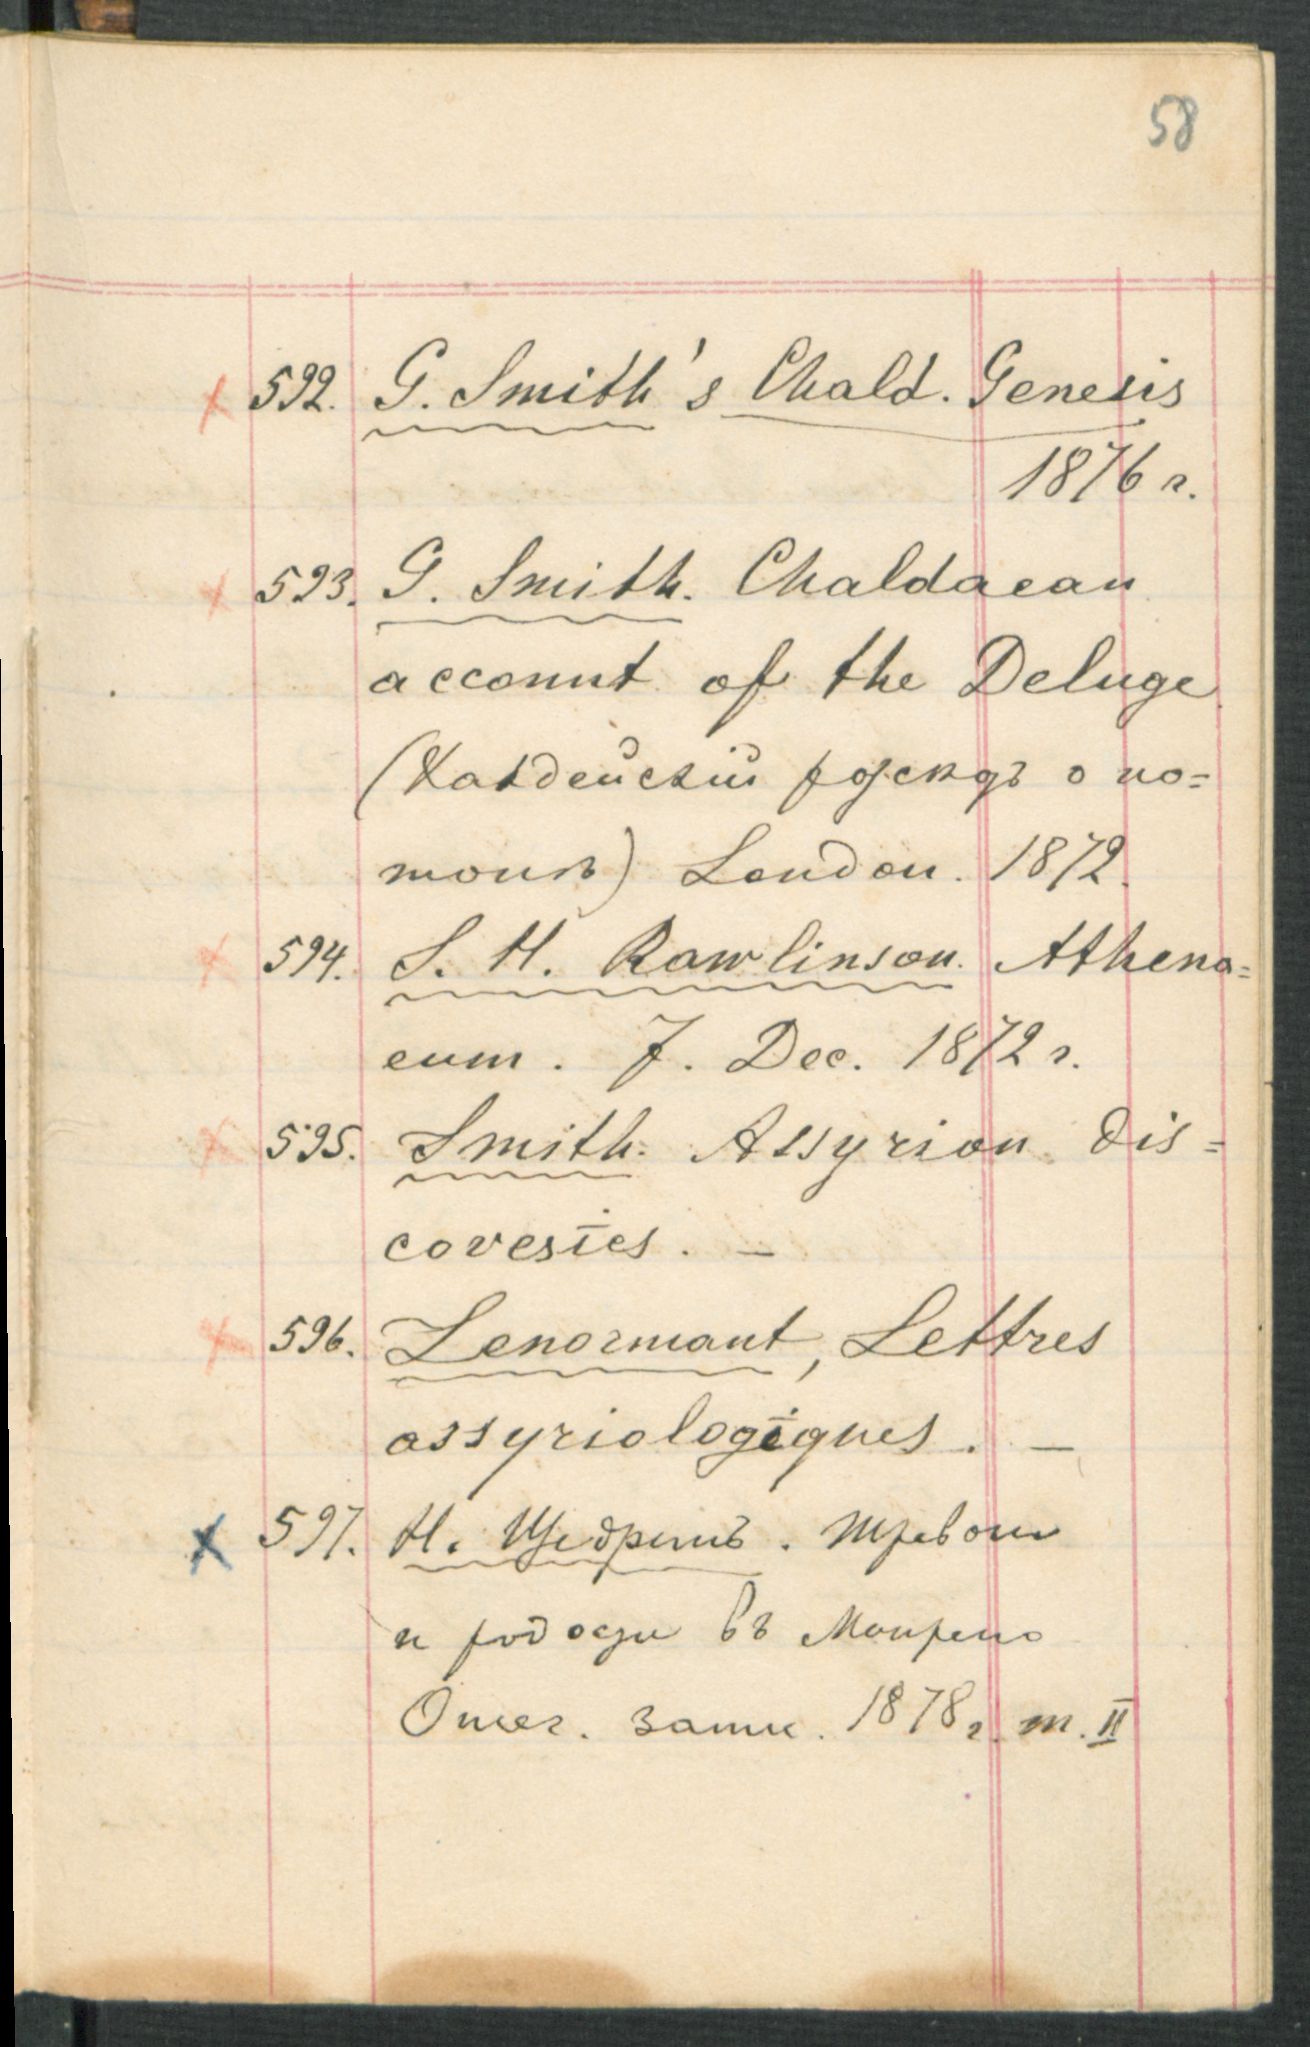 58
592. G. Smith's Chald. Genesis
1876 г.
593. G. Smith. Chaldaean
account of the Deluge
(Халдейскій розсказъ о по=
топѣ) London. 1872.
594. S. H. Rawlinson. Athena=
eum. 7. Dec. 1872 г.
595. Smith. Assyrian dis=
coveries. –
596. Lenormant, Lettres
assyriologiques. –
597. Н. Щедринъ. Тревоги
и радости въ Монрепо
Отеч. запис. 1878 г. т. II